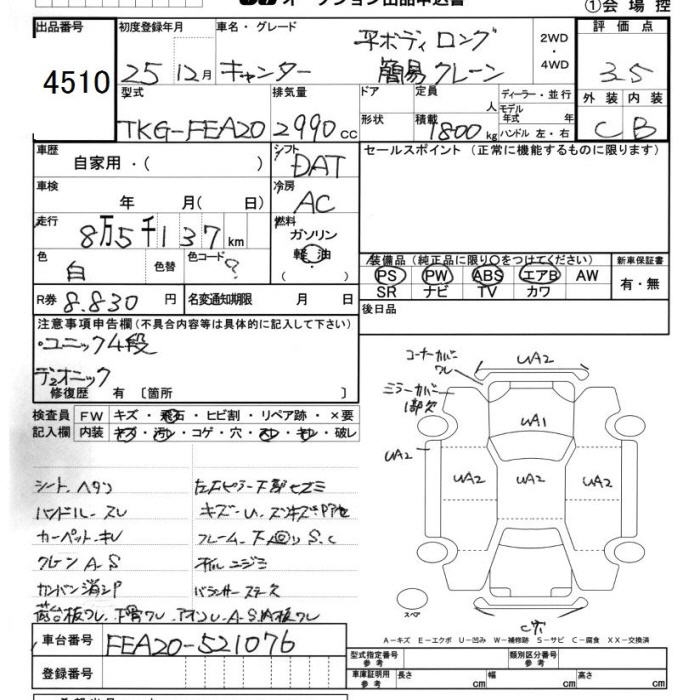 オークション出品申込書 ①会場控
出品番号 初度登録年月 車名・グレード 平ボディ ロング 2WD・4WD 評価点
4510 25 12月 キャンター 簡易クレーン 3.5
型式 排気量 ドア 定員 人 ディーラー・並行 外装 内装
モデル年式 年
TKG-FEA20 2990cc 形状 積載 1800kg ハンドル 左・右 C B
車歴 自家用・( ) シフト DAT セールスポイント(正常に機能するものに限ります)
車検 年 月( 日) 冷房 AC
走行 8万5千137km 燃料 ガソリン 軽油 ( )
色 白 色替 色コード ?
装備品(純正品に限り○をつけてください) 新車保証書
PS PW ABS エアB AW 有・無
SR ナビ TV カワ
R券 8.830円 名変通知期限 月 日 後日品
注意事項申告欄(不具合内容等は具体的に記入して下さい)
・ユニック4段
デュオニック
修復歴 有 〔箇所 〕
検査員 FW キズ・飛石・ヒビ割・リペア跡・×要
記入欄 内装 キズ・汚レ・コゲ・穴・スレ・キレ・破レ
コーナーカバーワレ UA2
ミラーカバー1部欠
UA1
UA2
UA2 UA2 UA2
シート.ヘタリ 左右ピラー下部セズミ
ハンドル.スレ
カーペット.キレ フレーム.下回りS.C
クレーンA.S
カンバン消シ戸
荷台板ワレ.
スペア
A-キズ E-エクボ U-凹み W-補修跡 S-サビ C-腐食 XX-交換済
車台番号 FEA20-521076
型式指定番号 参考 類別区分番号 参考
登録番号 車庫証明用 参考 長さ cm 幅 cm 高さ cm